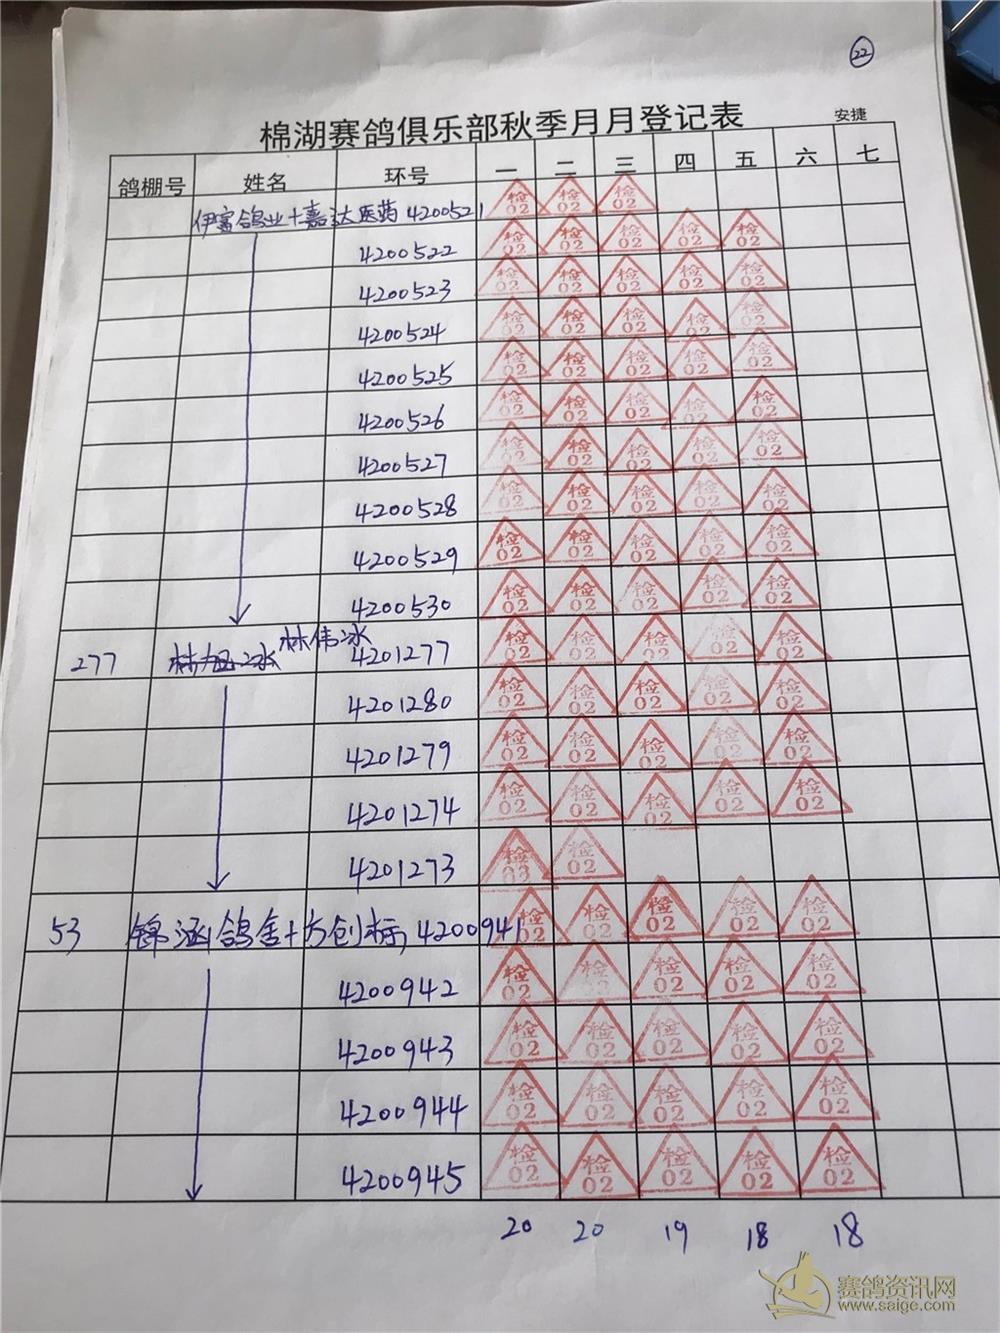 22
棉湖赛鸽俱乐部秋季月月登记表 安捷
鸽棚号 姓名 环号 一 二 三 四 五 六 七
伊富鸽业+嘉达医药 4200521 检02 检02 检02
4200522 检02 检02 检02 检02 检02
4200523 检02 检02 检02 检02 检02
4200524 检02 检02 检02 检02 检02
4200525 检02 检02 检02 检02 检02
4200526 检02 检02 检02 检02 检02
4200527 检02 检02 检02 检02 检02
4200528 检02 检02 检02 检02 检02
4200529 检02 检02 检02 检02 检02
4200530 检02 检02 检02 检02 检02
277 林旭冰 林伟冰 4201277 检02 检02 检02 检02 检02
4201280 检02 检02 检02 检02 检02
4201279 检02 检02 检02 检02 检02
4201274 检02 检02 检02 检02 检02
4201273 检02 检02
53 锦涵鸽舍+方创标 4200941 检02 检02 检02 检02 检02
4200942 检02 检02 检02 检02 检02
4200943 检02 检02 检02 检02 检02
4200944 检02 检02 检02 检02 检02
4200945 检02 检02 检02 检02 检02
20 20 19 18 18
赛鸽资讯网
www.saige.com